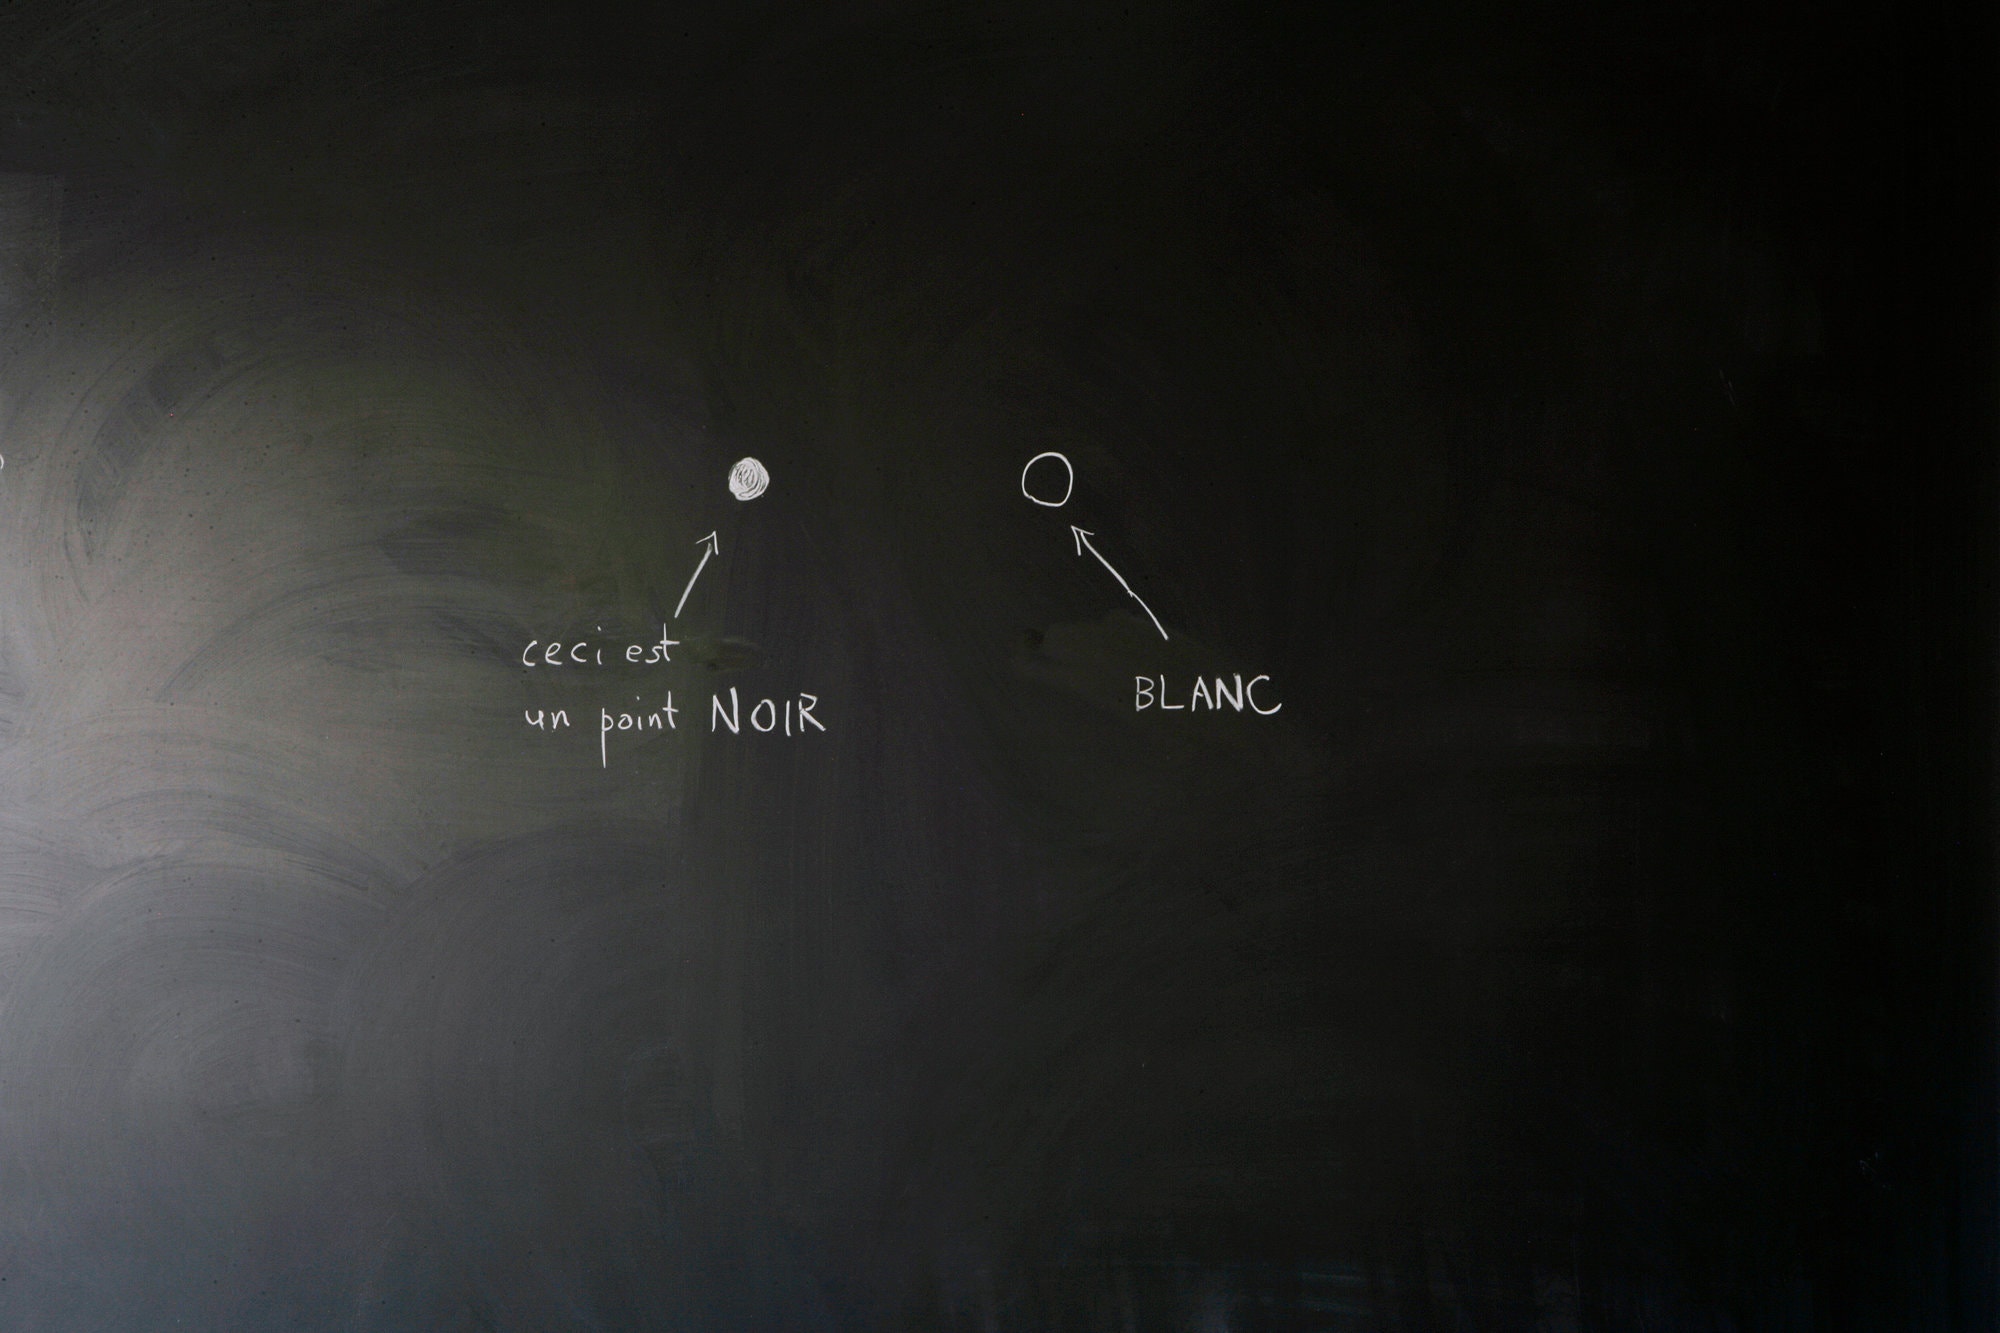 ceci est
un point NOIR
BLANC